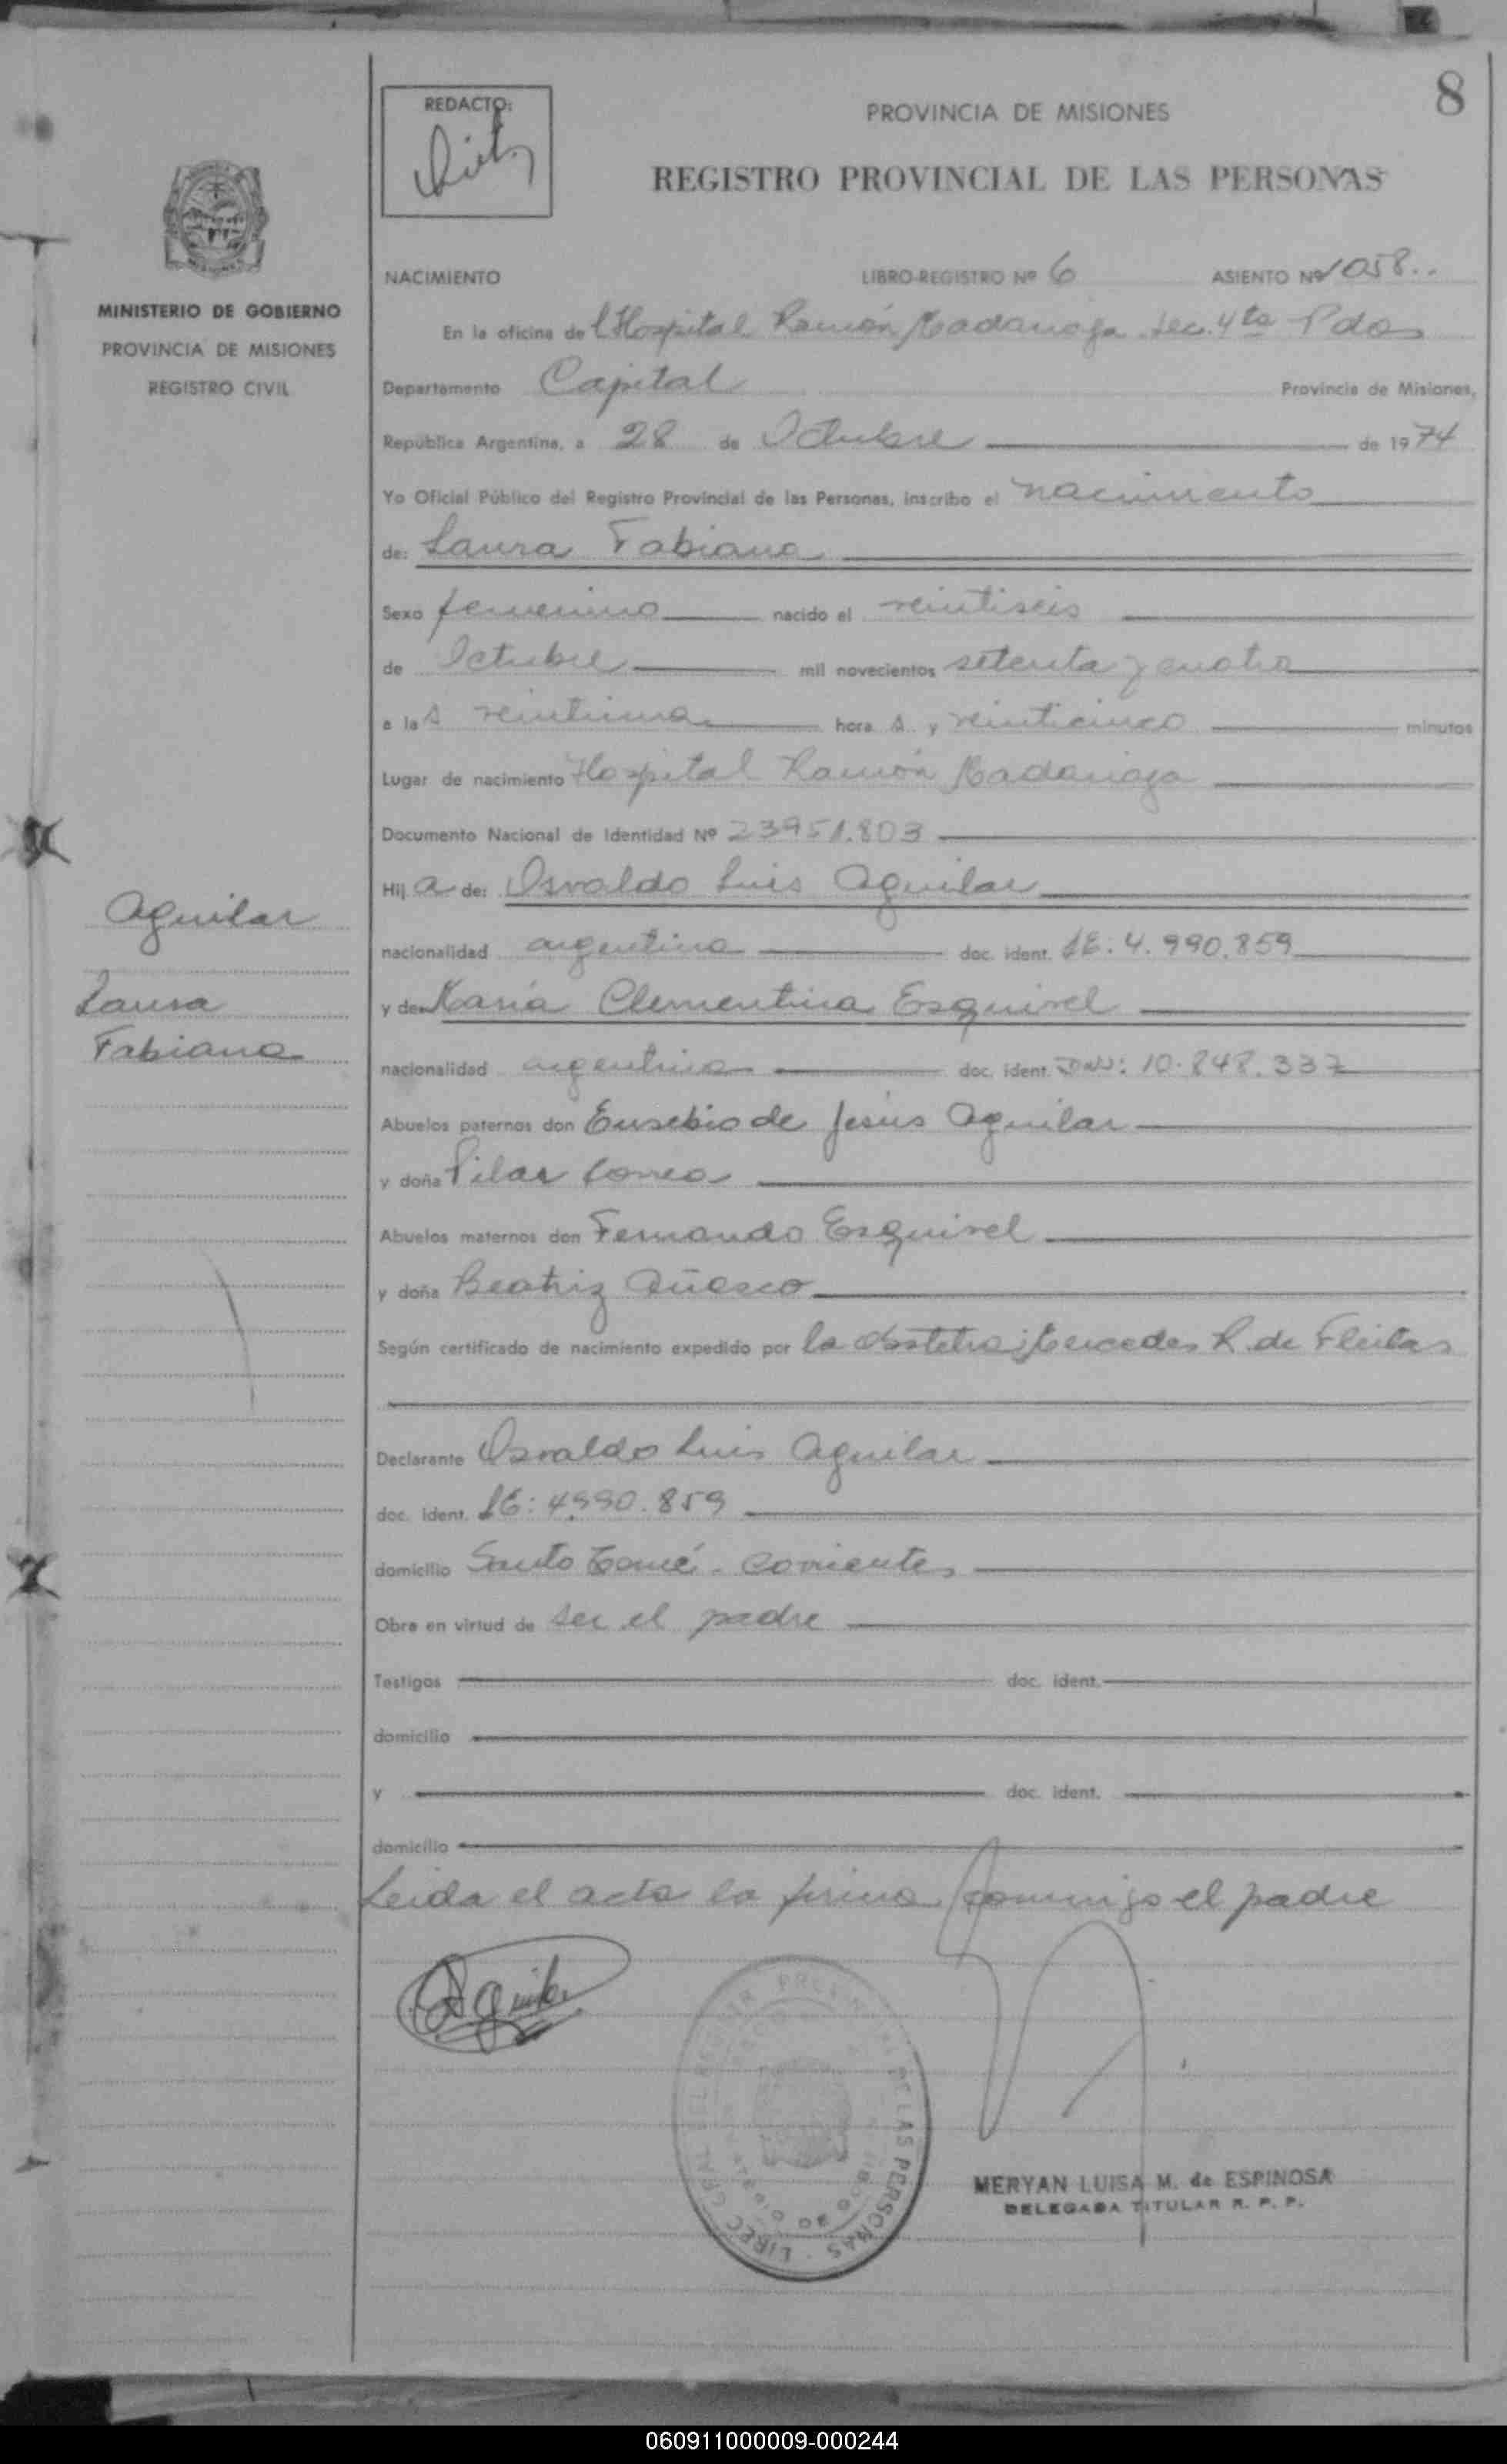 8
REDACTO:
PROVINCIA DE MISIONES
REGISTRO PROVINCIAL DE LAS PERSONAS
MINISTERIO DE GOBIERNO
PROVINCIA DE MISIONES
REGISTRO CIVIL
NACIMIENTO LIBRO-REGISTRO Nº 6 ASIENTO Nº 1058..
En la oficina del Hospital Ramón Madariaga Sec. 4ta Pdas
Departamento Capital Provincia de Misiones,
República Argentina, a 28 de Octubre de 1974
Yo Oficial Público del Registro Provincial de las Personas, inscribo el nacimiento
de: Laura Fabiana
Sexo femenino nacido el veintiseis
de Octubre mil novecientos setenta y cuatro
a las veintiuna hora s y veinticinco minutos
Lugar de nacimiento Hospital Ramón Madariaga
Documento Nacional de Identidad Nº 23951.803
Hija de: Osvaldo Luis Aguilar
nacionalidad argentina doc. ident. LE: 4.990.859
y de: María Clementina Esquivel
nacionalidad argentina doc. ident. DNI: 10.848.337
Abuelos paternos don Eusebio de Jesús Aguilar
y doña Pilar Correa
Abuelos maternos don Fernando Esquivel
y doña Beatriz
Según certificado de nacimiento expedido por la obstetra: Mercedes R. de Fleitas
Declarante Osvaldo Luis Aguilar
doc. ident. LE: 4.990.859
domicilio Santo Tomé - Corrientes
Obra en virtud de ser el padre
Testigos doc. ident.
domicilio
y doc. ident.
domicilio
Leida el acta la firma conmigo el padre
Aguilar
Laura
Fabiana
Aguilar
DE LAS PERSONAS
MERYAN LUISA M. de ESPINOSA
DELEGADA TITULAR R. P. P.
060911000009-000244